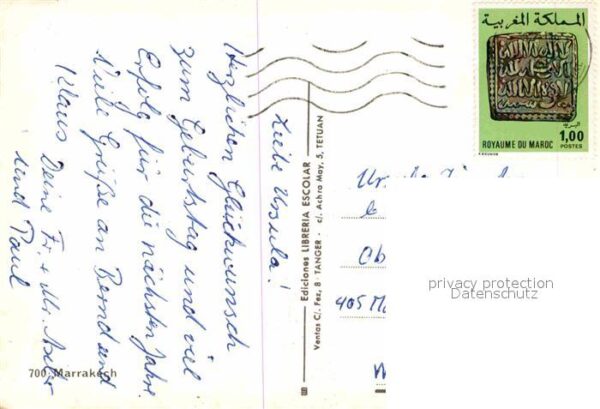 المملكة المغربية
البريد
1,00
ROYAUME DU MAROC
POSTES
Liebe Ursula!
Herzlichen Glückwunsch
zum Geburtstag und viel
Erfolg für die nächsten Jahre.
Viele Grüße an Bernd und
Klaus Deine Fr. + Mr.
und Paul
700. Marrakech
Ediciones LIBRERIA ESCOLAR
Ventas C/. Fez, 8 - TANGER - c/. Achra May, 5, TETUAN
405 M
privacy protection
Datenschutz